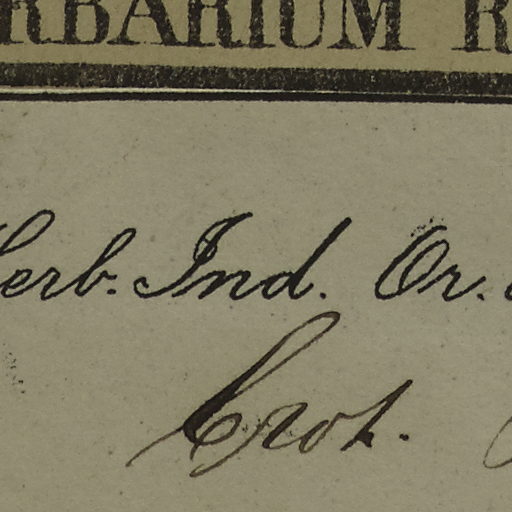 RBARIUM R
Herb. Ind. Or.
Crot.